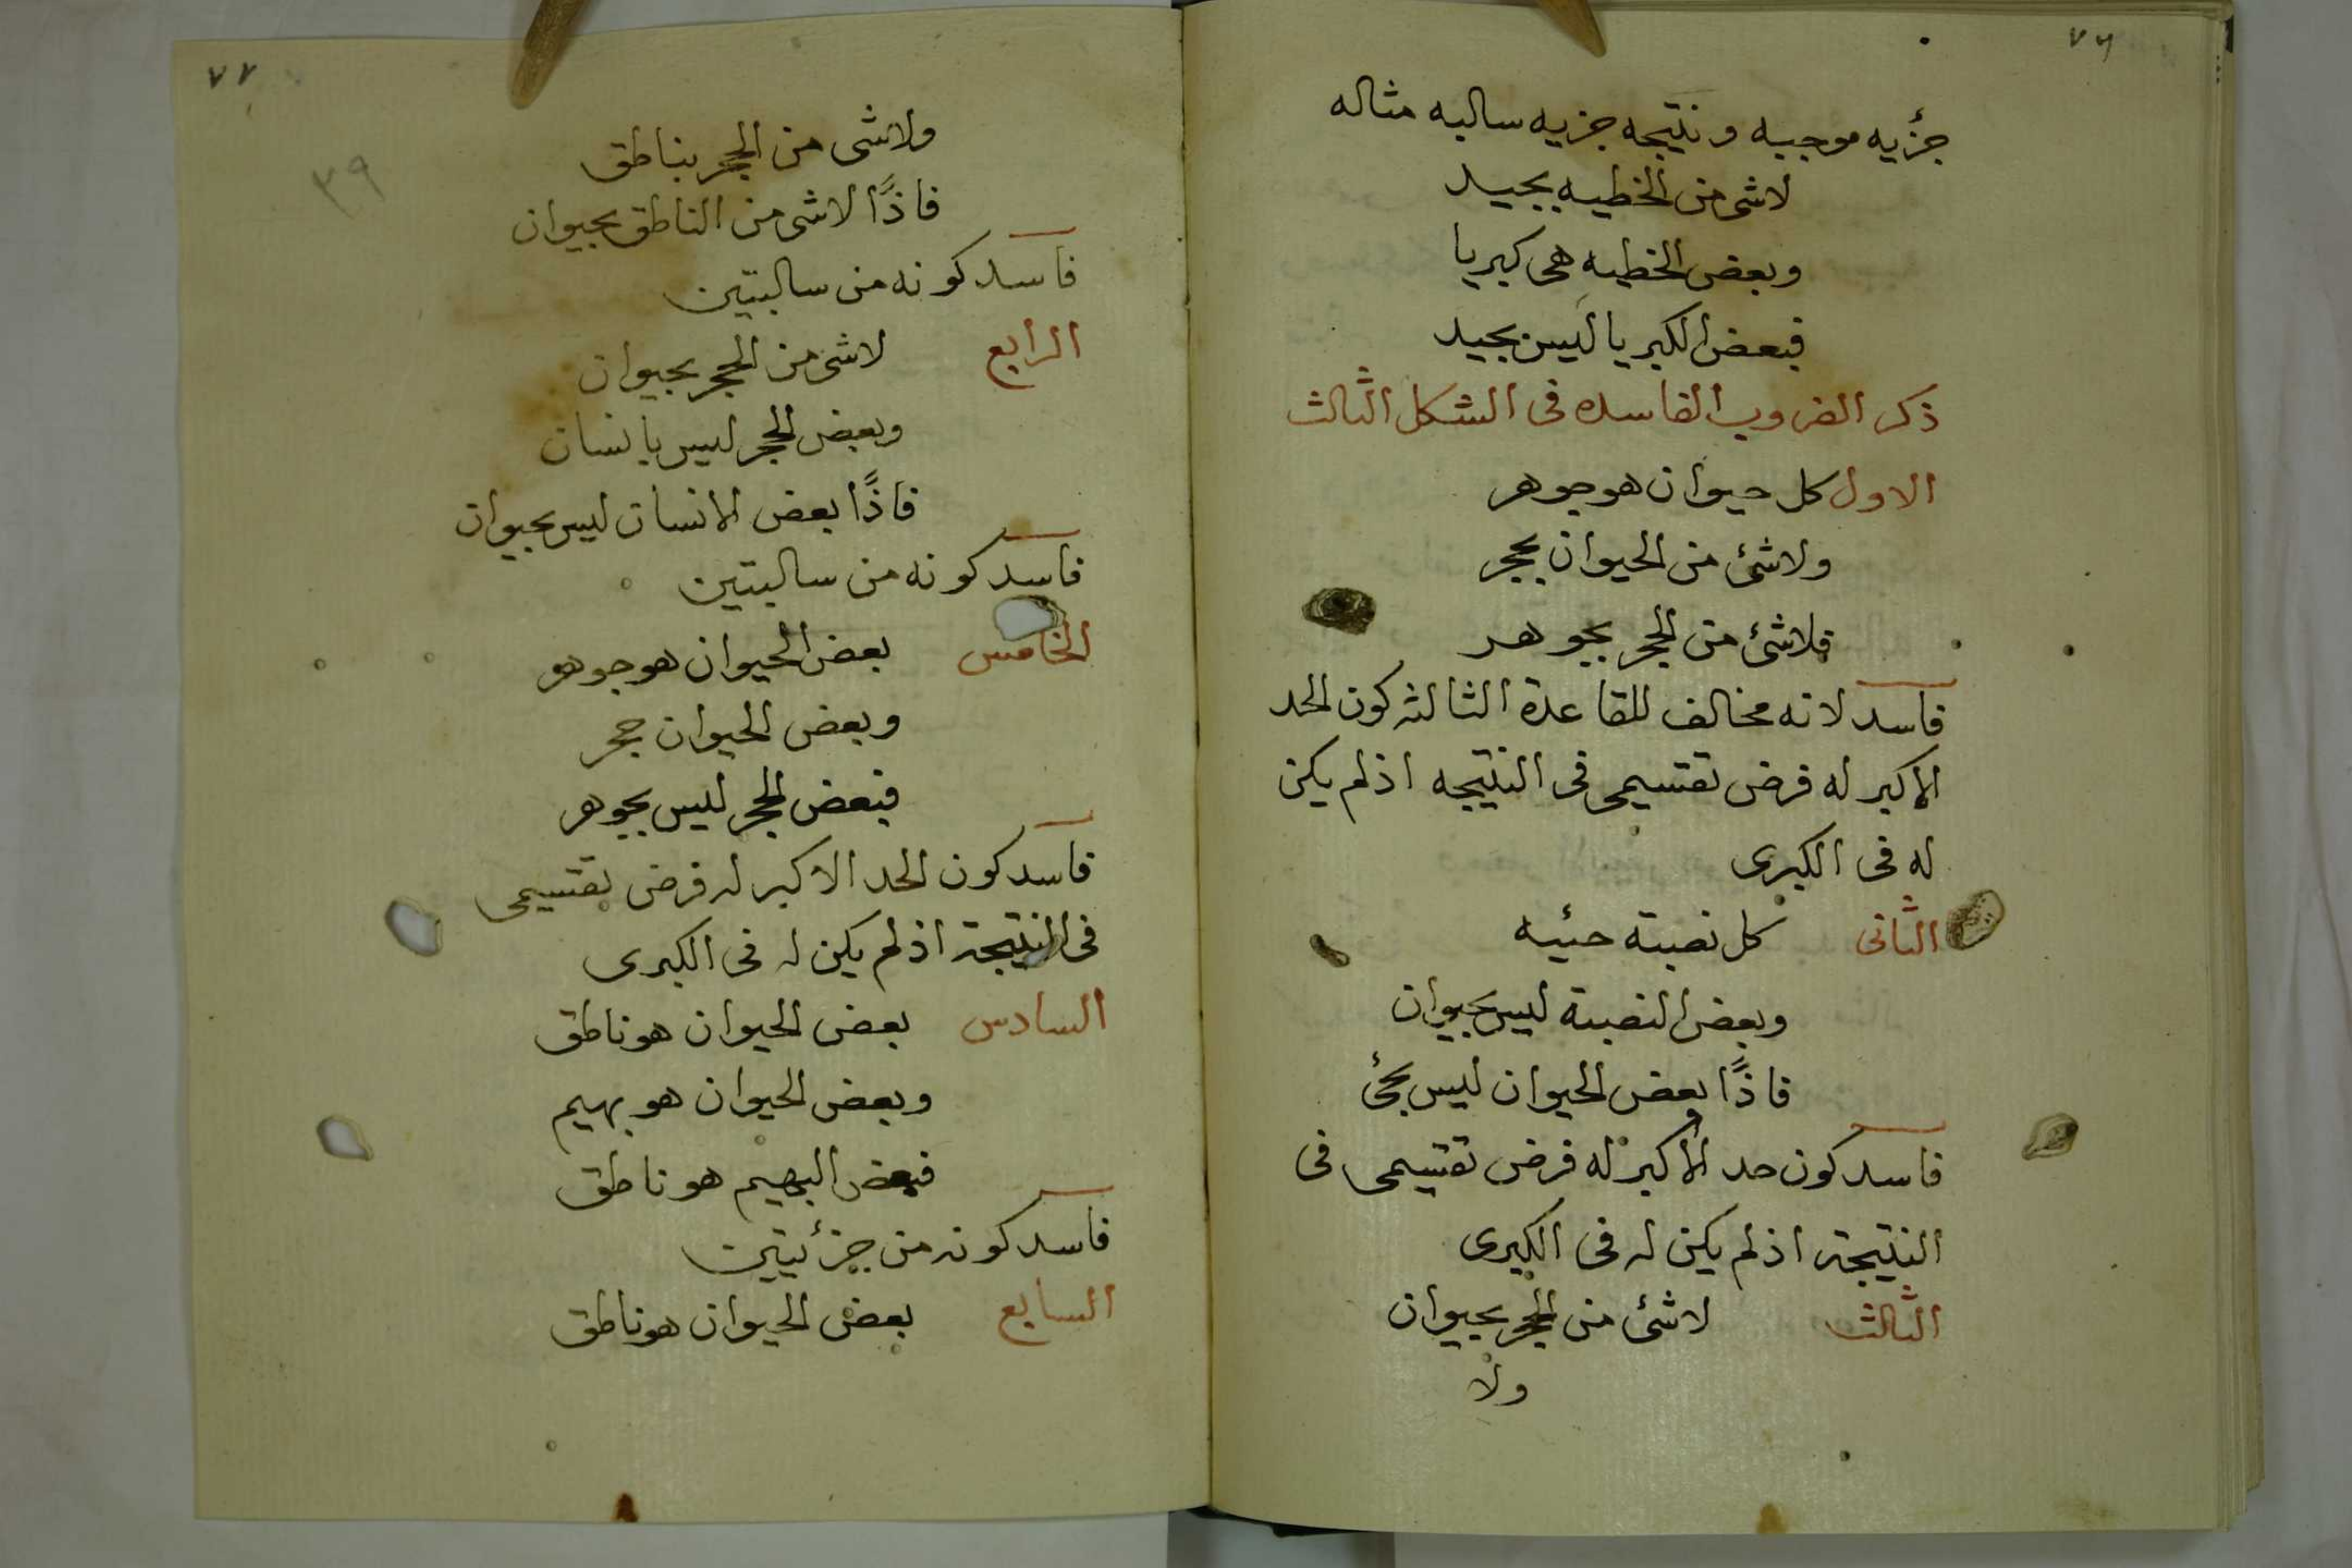 ٧٦
جزٔيه موجبه ونتيجه جزيه سالبه مثاله
لاشى من الخطيه بجيد
وبعض الخطيه هى كبريا
فبعض الكبريا ليس بجيد
ذكر الضروب الفاسده فى الشكل الثالث
الاول كل حيوان هو جوهر
ولاشئ من الحيوان بحجر
فلاشئ من الحجر بجوهر
فاسد لانه مخالف للقاعدة الثالثه كون الحد
الاكبر له فرض تقسيمى فى النتيجه اذ لم يكن
له فى الكبرى
الثانى كل نصبة حئيه
وبعض النصبة ليس بحيوان
فاذًا بعض الحيوان ليس بحئ
فاسد كون حد الاكبر له فرض تقسيمى فى
النتيجة اذ لم يكن له فى الكبرى
الثالث لاشئ من الحجر بحيوان
ولا
٧٧
ولاشى من الحجر بناطق
٣٩
فاذًا لاشى من الناطق بحيوان
فاسد كونه من سالبتين
الرابع لاشى من الحجر بحيوان
وبعض الحجر ليس بانسان
فاذًا بعض الانسان ليس بحيوان
فاسد كونه من سالبتين
الخامس بعض الحيوان هو جوهر
وبعض الحيوان حجر
فبعض الحجر ليس بجوهر
فاسد كون الحد الاكبر له فرض تقسيمى
فى النتيجة اذ لم يكن له فى الكبرى
السادس بعض الحيوان هو ناطق
وبعض الحيوان هو بهيم
فبعض البهيم هو ناطق
فاسد كونه من جزئيتين
السابع بعض الحيوان هو ناطق